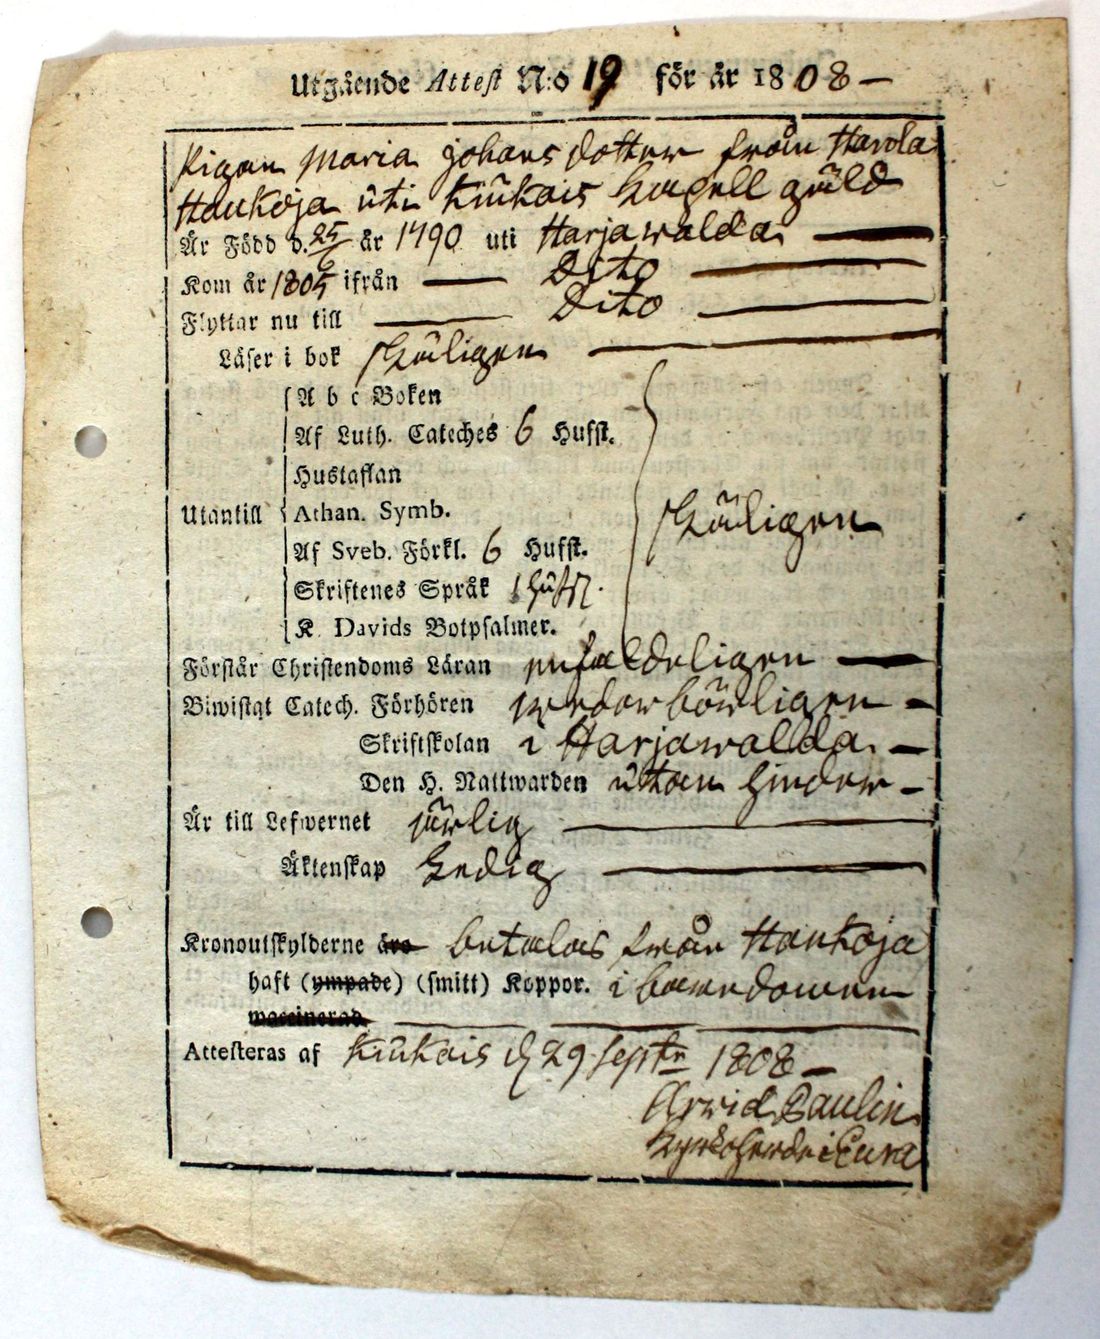 Utgående Attest N:o 19 för år 1808
Pigan Maria Johansdotter från Harola
Haukoja uti Kiukais Capell gäld
Är Född d. 25/6 år 1790 uti Harjawalda
Kom år 1805 ifrån Dito
Flyttar nu till Dito
Läser i bok skäligen
A b c Boken
Af Luth. Cateches 6 Hufst.
Hustaflan
Utantill Athan. Symb. skäligen
Af Sveb. Förkl. 6 Hufst.
Skriftenes Språk 1 Hufst.
K. Davids Botpsalmer.
Förstår Christendoms Läran enfaldeligen
Biwistat Catech. Förhören wederbörligen
Skriftskolan i Harjawalda
Den H. Nattwarden utan hinder
Är till Lefwernet ärlig
Äktenskap Ledig
Kronoutskylderne äro betalas från Haukoja
haft (ympade) (smitt) Koppor. i barndomen
waccinerad
Attesteras af Kiukais d. 29 Septr 1808
Arvid Paulin
Kyrkoherde i Eura